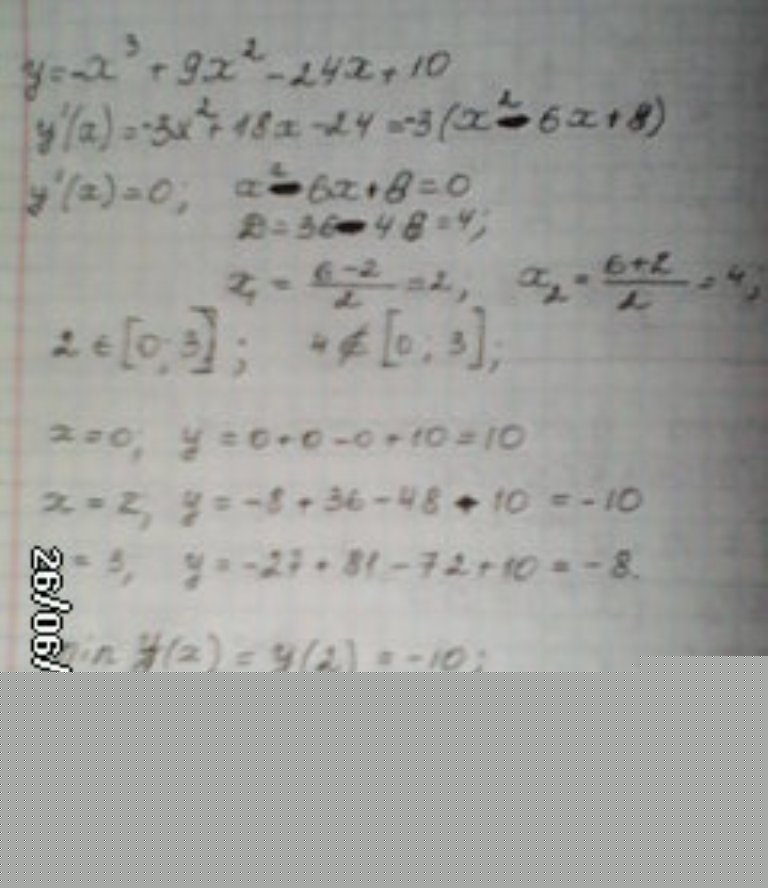 y=-x³+9x²-24x+10
y'(x)=-3x²+18x-24=-3(x²-6x+8)
y'(x)=0; x²-6x+8=0
D=36-48=4;
x₁=(6-2)/2=2, x₂=(6+2)/2=4;
2∈[0;3]; 4∉[0;3];
x=0; y=0+0-0+10=10
x=2, y=-8+36-48+10=-10
=3, y=-27+81-72+10=-8.
min y(x)=y(2)=-10;
26/06/